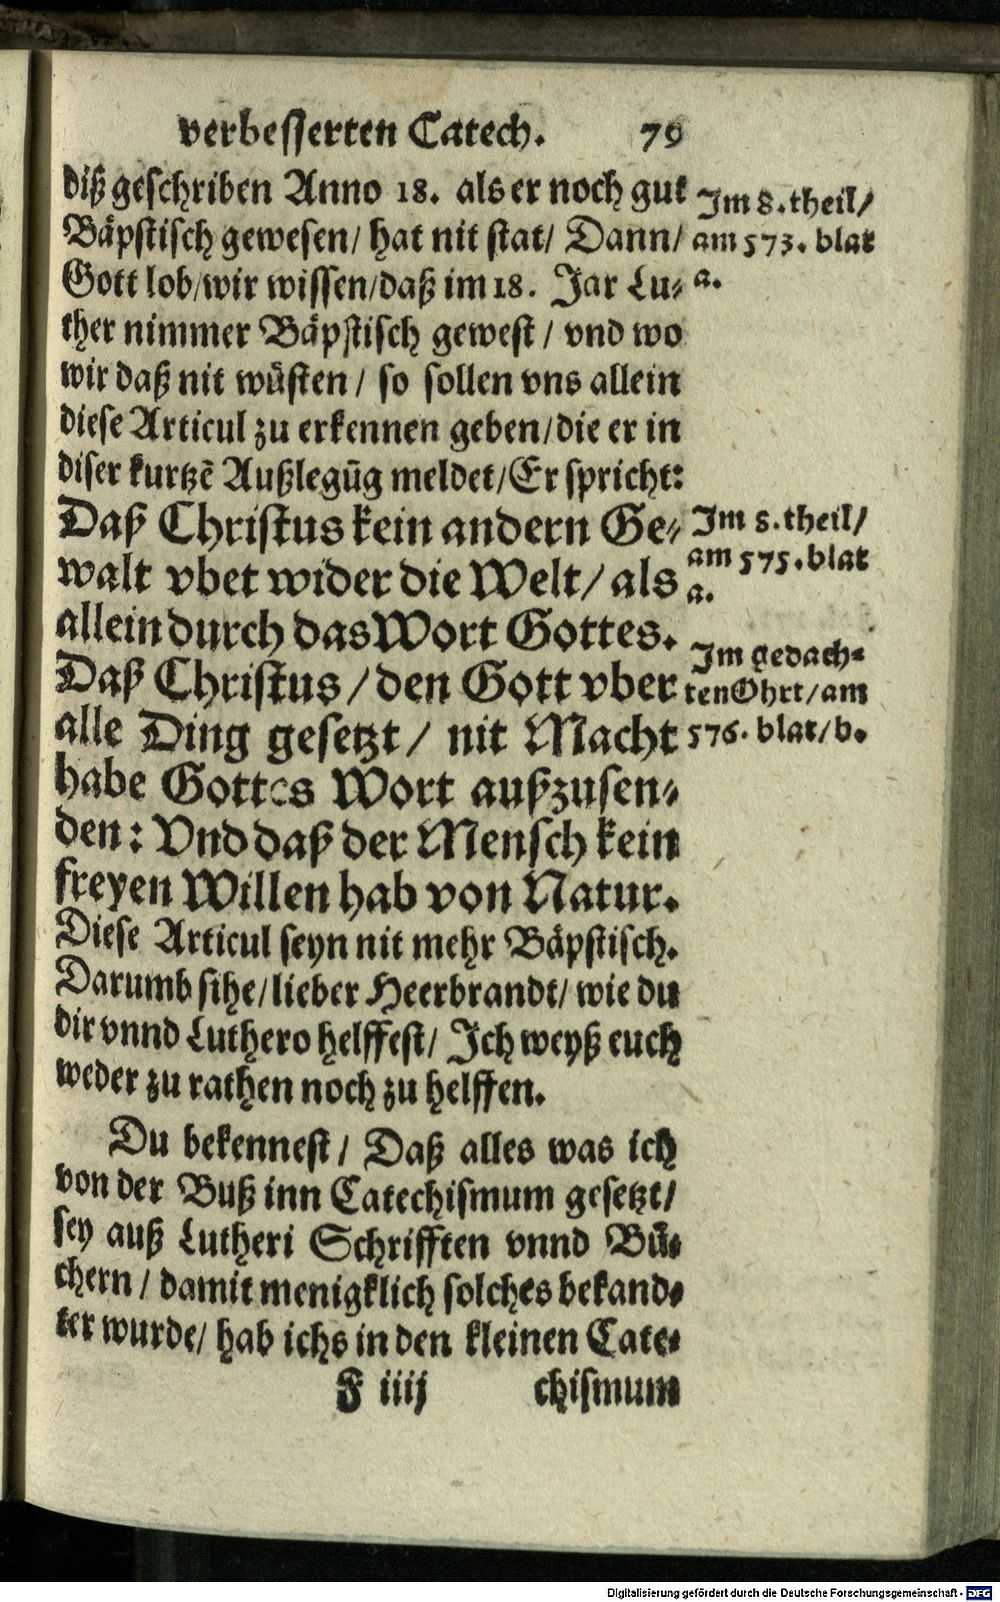 verbesserten Catech. 79
diß geschriben Anno 18. als er noch gut
Bäpstisch gewesen/ hat nit stat/ Dann/
Gott lob/wir wissen/daß im 18. Jar Lu-
ther nimmer Bäpstisch gewest / vnd wo
wir daß nit wüsten / so sollen vns allein
diese Articul zu erkennen geben/die er in
diser kurtzē Außlegūg meldet/Er spricht:
Daß Christus kein andern Ge-
walt vbet wider die Welt/ als
allein durch das Wort Gottes.
Daß Christus /den Gott vber
alle Ding gesetzt / nit Macht
habe Gottes Wort außzusen-
den: Vnd daß der Mensch kein
freyen Willen hab von Natur.
Diese Articul seyn nit mehr Bäpstisch.
Darumb sihe/lieber Heerbrandt/ wie du
dir vnnd Luthero helffest/ Ich weyß euch
weder zu rathen noch zu helffen.
Du bekennest/ Daß alles was ich
von der Buß inn Catechismum gesetzt/
sey auß Lutheri Schrifften vnnd Bü-
chern / damit menigklich solches bekand-
ter wurde/ hab ichs in den kleinen Cate-
F iiij chismum
Im 8.theil/
am 573. blat
a.
Im 8.theil/
am 575.blat
a.
Im gedach-
ten Ohrt/am
576. blat/b.
Digitalisierung gefördert durch die Deutsche Forschungsgemeinschaft - DFG